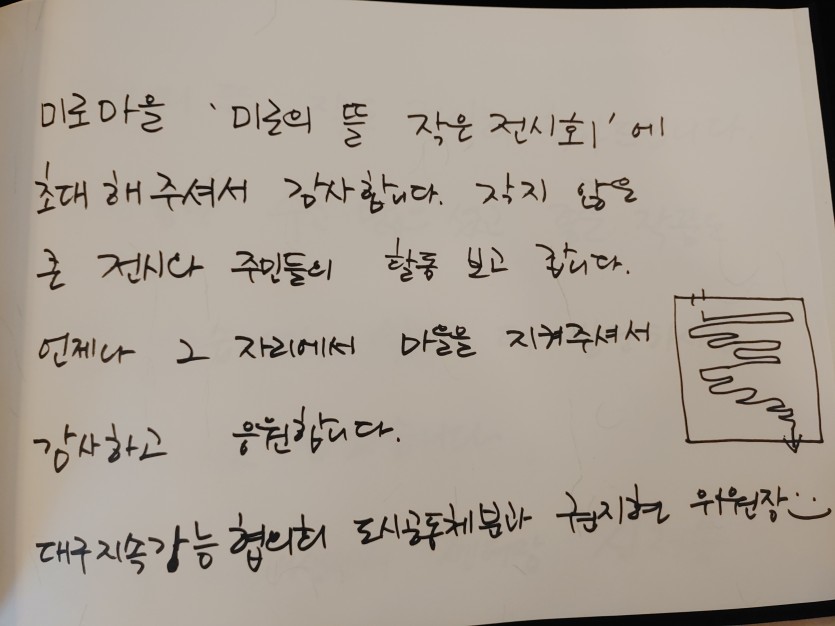 미로마을 '미로의 뜰 작은 전시회'에
초대해주셔서 감사합니다. 작지 않은
큰 전시다 주민들의 활동 보고 갑니다.
언제나 그 자리에서 마을을 지켜주셔서
감사하고 응원합니다.
대구지속가능협의회 도시공동체분과 권지현 위원장